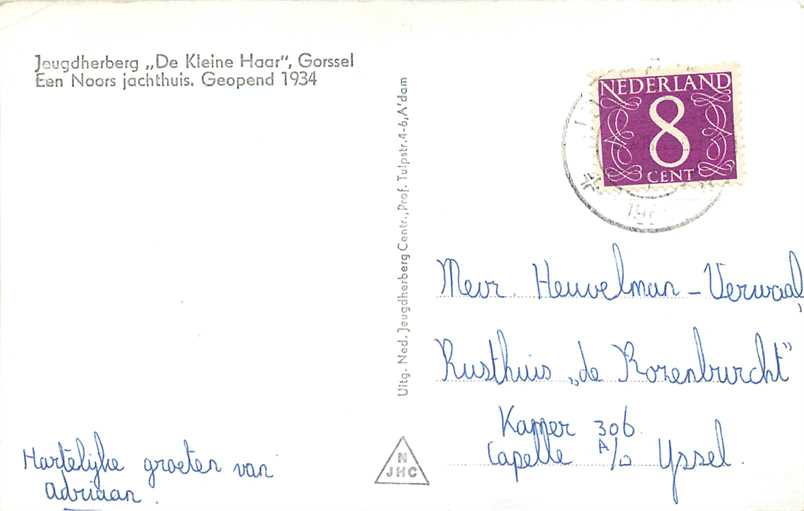 Jeugdherberg „De Kleine Haar", Gorssel
Een Noors jachthuis. Geopend 1934
Uitg. Ned. Jeugdherberg Centr., Prof. Tulpstr. 4-6, A'dam
NEDERLAND
8
CENT
Mevr. Heuvelman-Verwaal,
Rusthuis „de Rozenburcht"
Kamer 306
Capelle A/D Yssel.
Hartelijke groeten van
Adriaan.
N
JHC